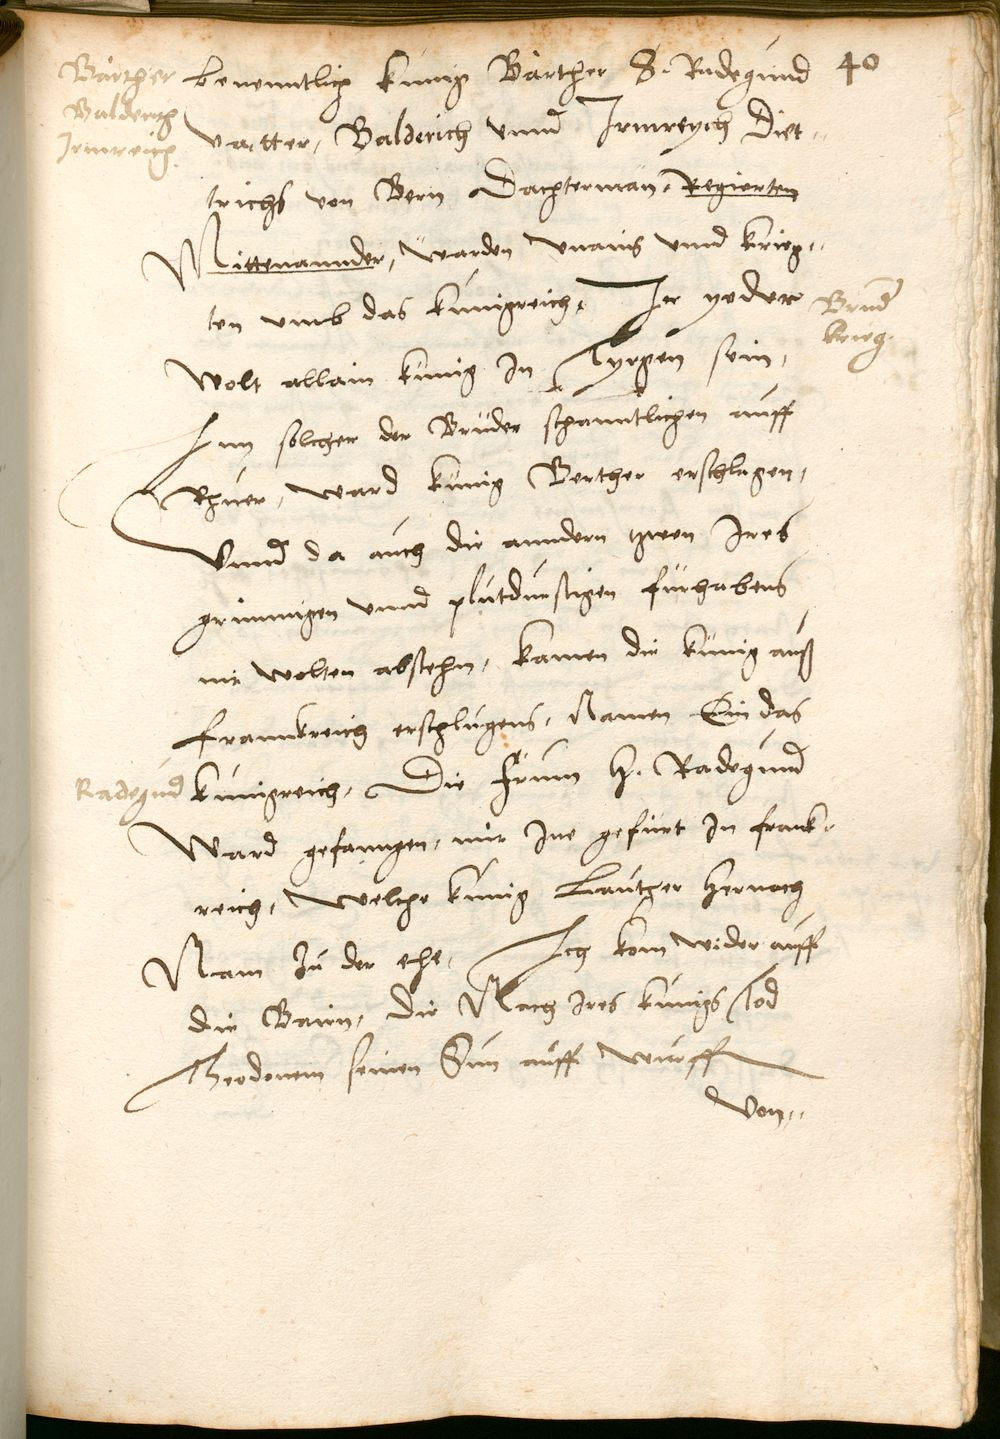 40
Bärther
Balderich
Irmreich
benenntlich kunig Bärther S. Radegund
vatter, Balderich vnnd Irmreych Diet-
trichs von Bern Dachterman, Regierten
Mittenannder, wurden vnains vnnd krieg-
ten vmb das künigreich, Ir yeder
Brud
krieg
wolt allain künig In Tyrgen sein,
Inn solcher der Brüder schanntlichen auff
Rhuer, ward künig Berther erschlagen,
Vnnd da auch die anndern zwen Ires
grimmigen vnnd plutdurstigen fürhabens
nie wolten abstehn, kamen die künig auß
Frannkreich erschlugens, Namen Ein das
Radegund
künigreich, Die Frum H. Radegund
Ward gefanngen, mit Ine gefürt In frank-
reich, welche künig Lauther hernach
Nam zu der ehe, Ich kom wider auff
die Bairn, die Nach Ires kunigs Tod
Theodonem seinen Sun auff wurff
von